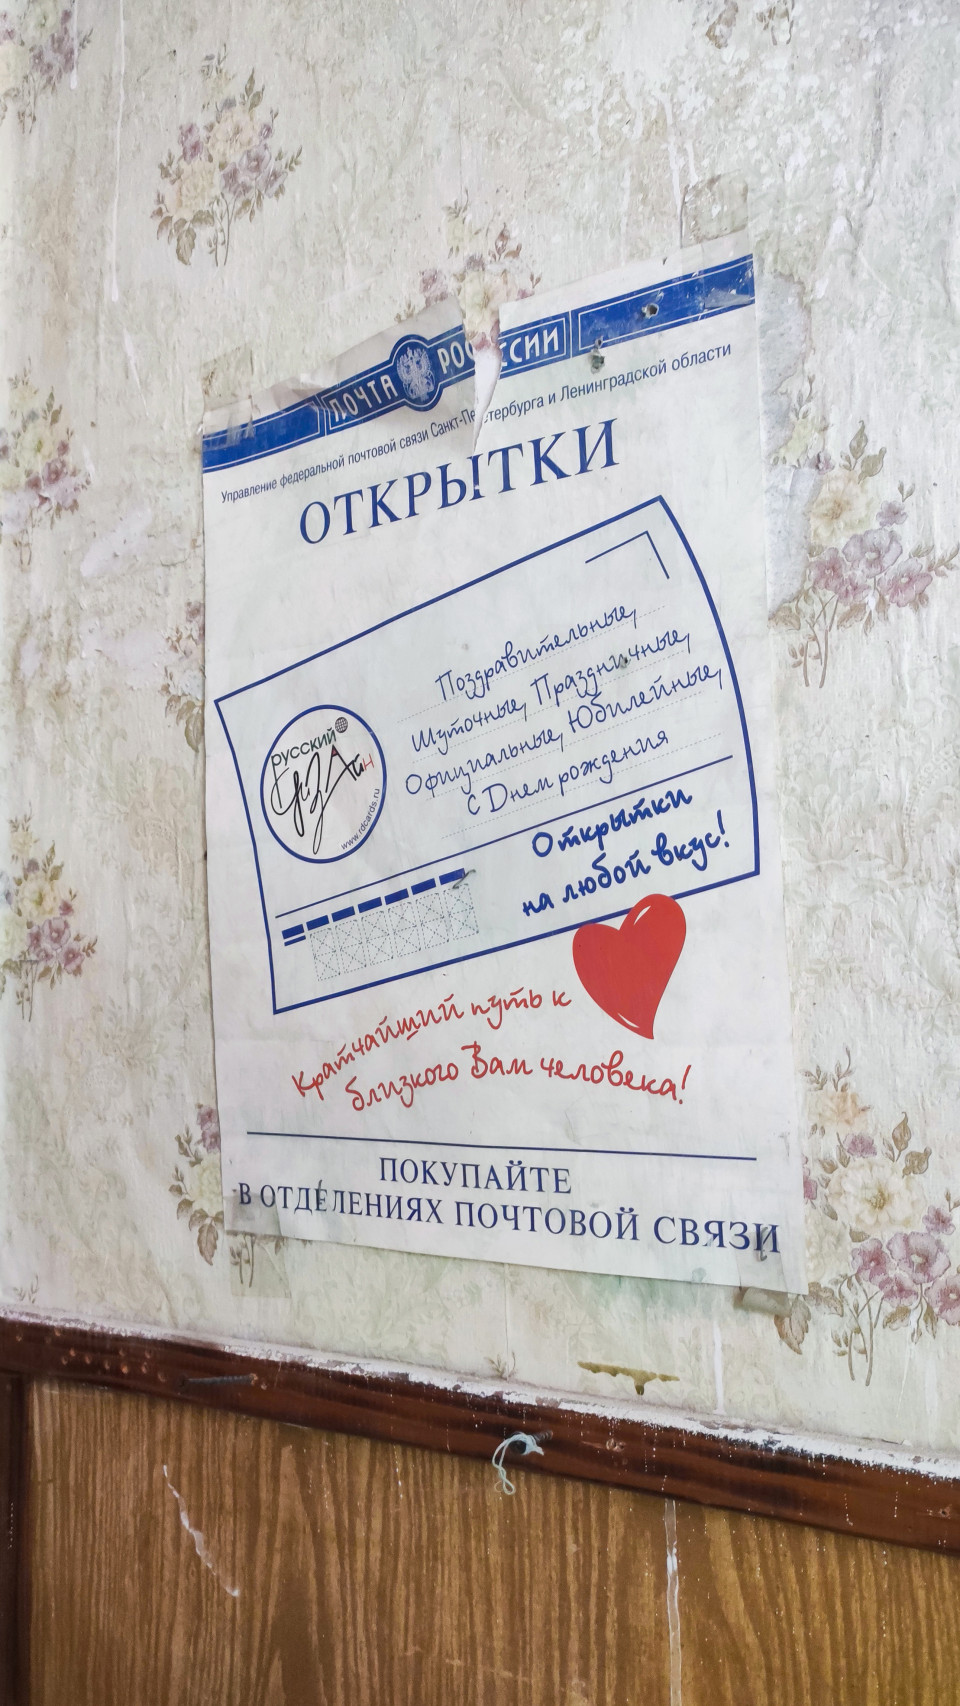 ПОЧТА РОССИИ
Управление федеральной почтовой связи Санкт-Петербурга и Ленинградской области
ОТКРЫТКИ
Поздравительные,
Шуточные, Праздничные,
Официальные, Юбилейные,
с Днем рождения
русский
ДиЗАйн
www.rdcards.ru
Открытки
на любой вкус!
Кратчайший путь к
близкого Вам человека!
ПОКУПАЙТЕ
В ОТДЕЛЕНИЯХ ПОЧТОВОЙ СВЯЗИ